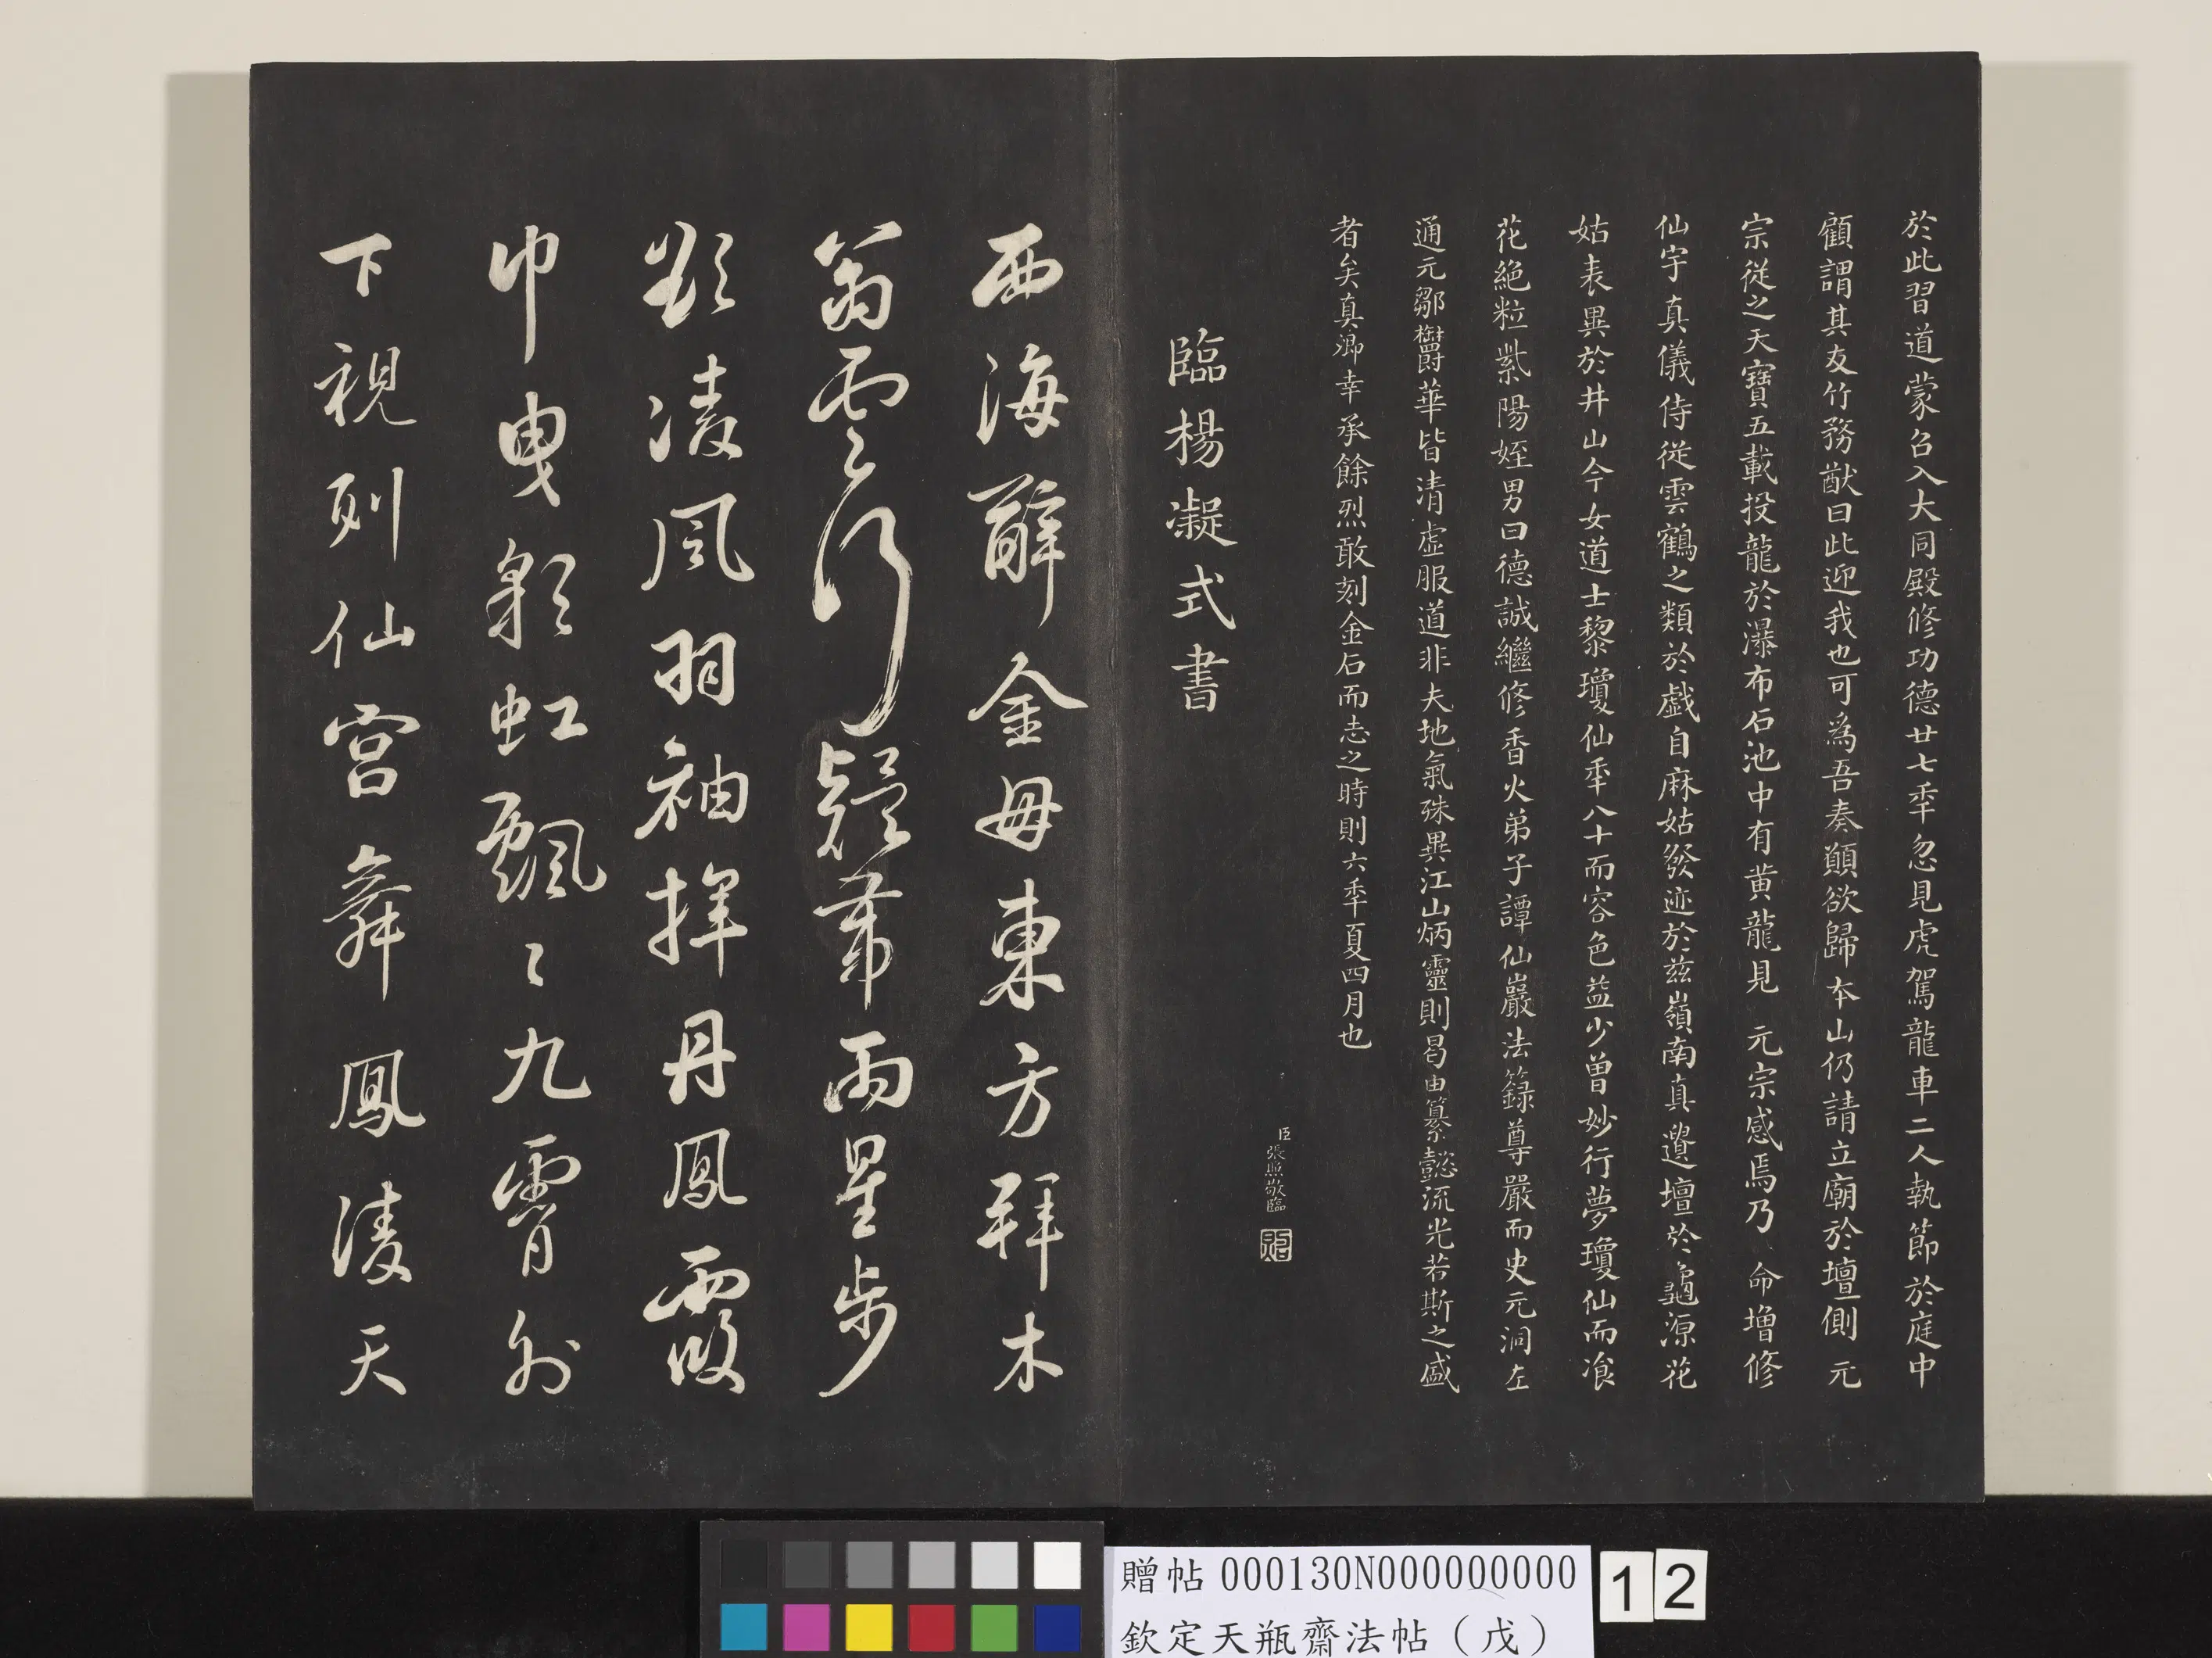 於此習道蒙召入大同殿修功德廿七年忽見虎駕龍車二人執節於庭中
顧謂其友竹務猷曰此迎我也可為吾奏願欲歸本山仍請立廟於壇側元
宗從之天寶五載投龍於瀑布石池中有黃龍見元宗感焉乃命增修
仙宇真儀侍從雲鶴之類於戲自麻姑發迹於茲嶺南真遺壇於龜源花
姑表異於井山今女道士黎瓊仙年八十而容色益少曾妙行夢瓊仙而飡
花絕粒紫陽姪男曰德誠繼修香火弟子譚仙巖法籙尊嚴而史元洞左
通元鄒鬱華皆清虛服道非夫地氣殊異江山炳靈則曷由纂懿流光若斯之盛
者矣真卿幸承餘烈敢刻金石而志之時則六年夏四月也
臣張照敬臨
照
臨楊凝式書
西海辭金母東方拜木
翁雲行疑帶雨星步
欲凌風羽袖揮丹鳳霞
巾曳彩虹飄飄九霄外
下視列仙宮舞鳳凌天
贈帖 000130N000000000
欽定天瓶齋法帖（戊）
12